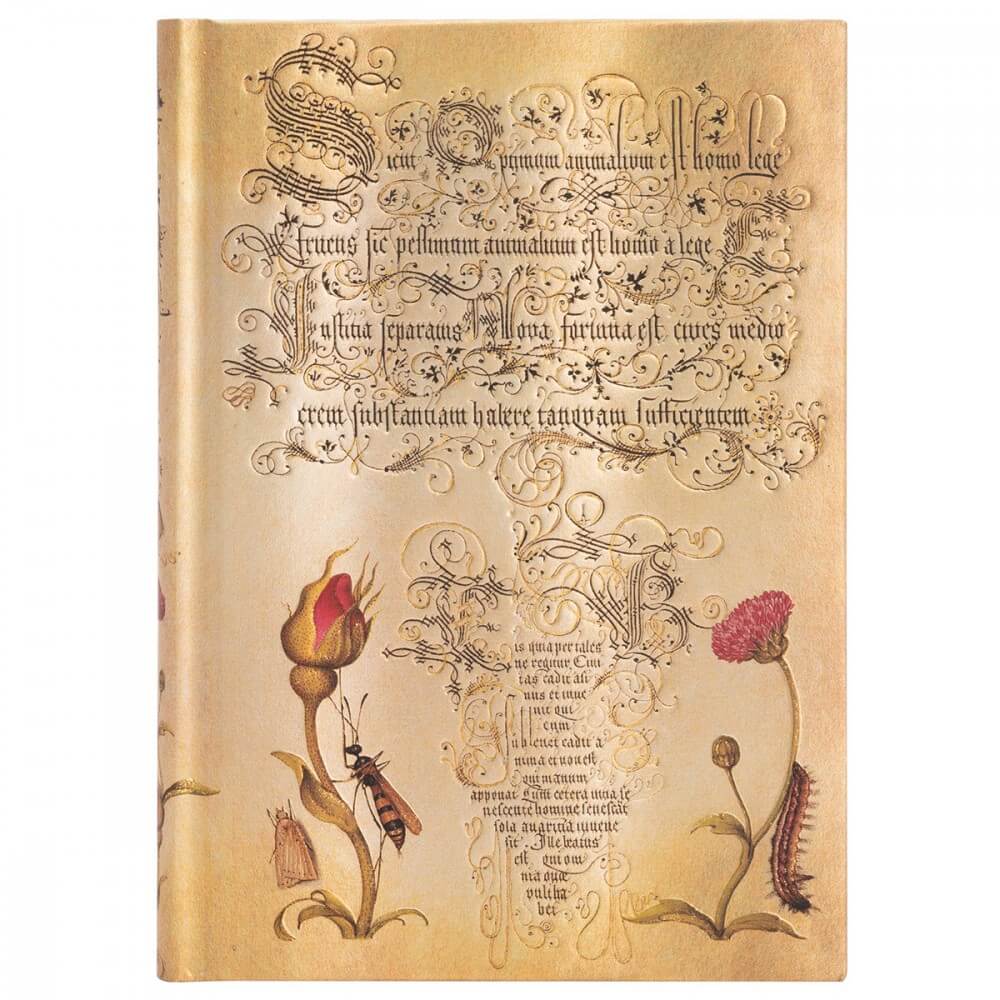 Sicut Optimum animalium est homo lege
fruens sic pessimum animalium est homo a lege
Iustitia separatus Nova fortuna est cives medio
crem substantiam habere tanquam sufficientem
is quia per tales
ne regitur. Civi
tas cadit asi
nus et inve
nit qui
eum
sublevet cadit a
nima et non est
qui manum
apponat Cum cetera vitia se
nescente homine senescāt
sola avaritia iuvene
sit. Ille beatus
est qui om
nia quae
vult ha
bet